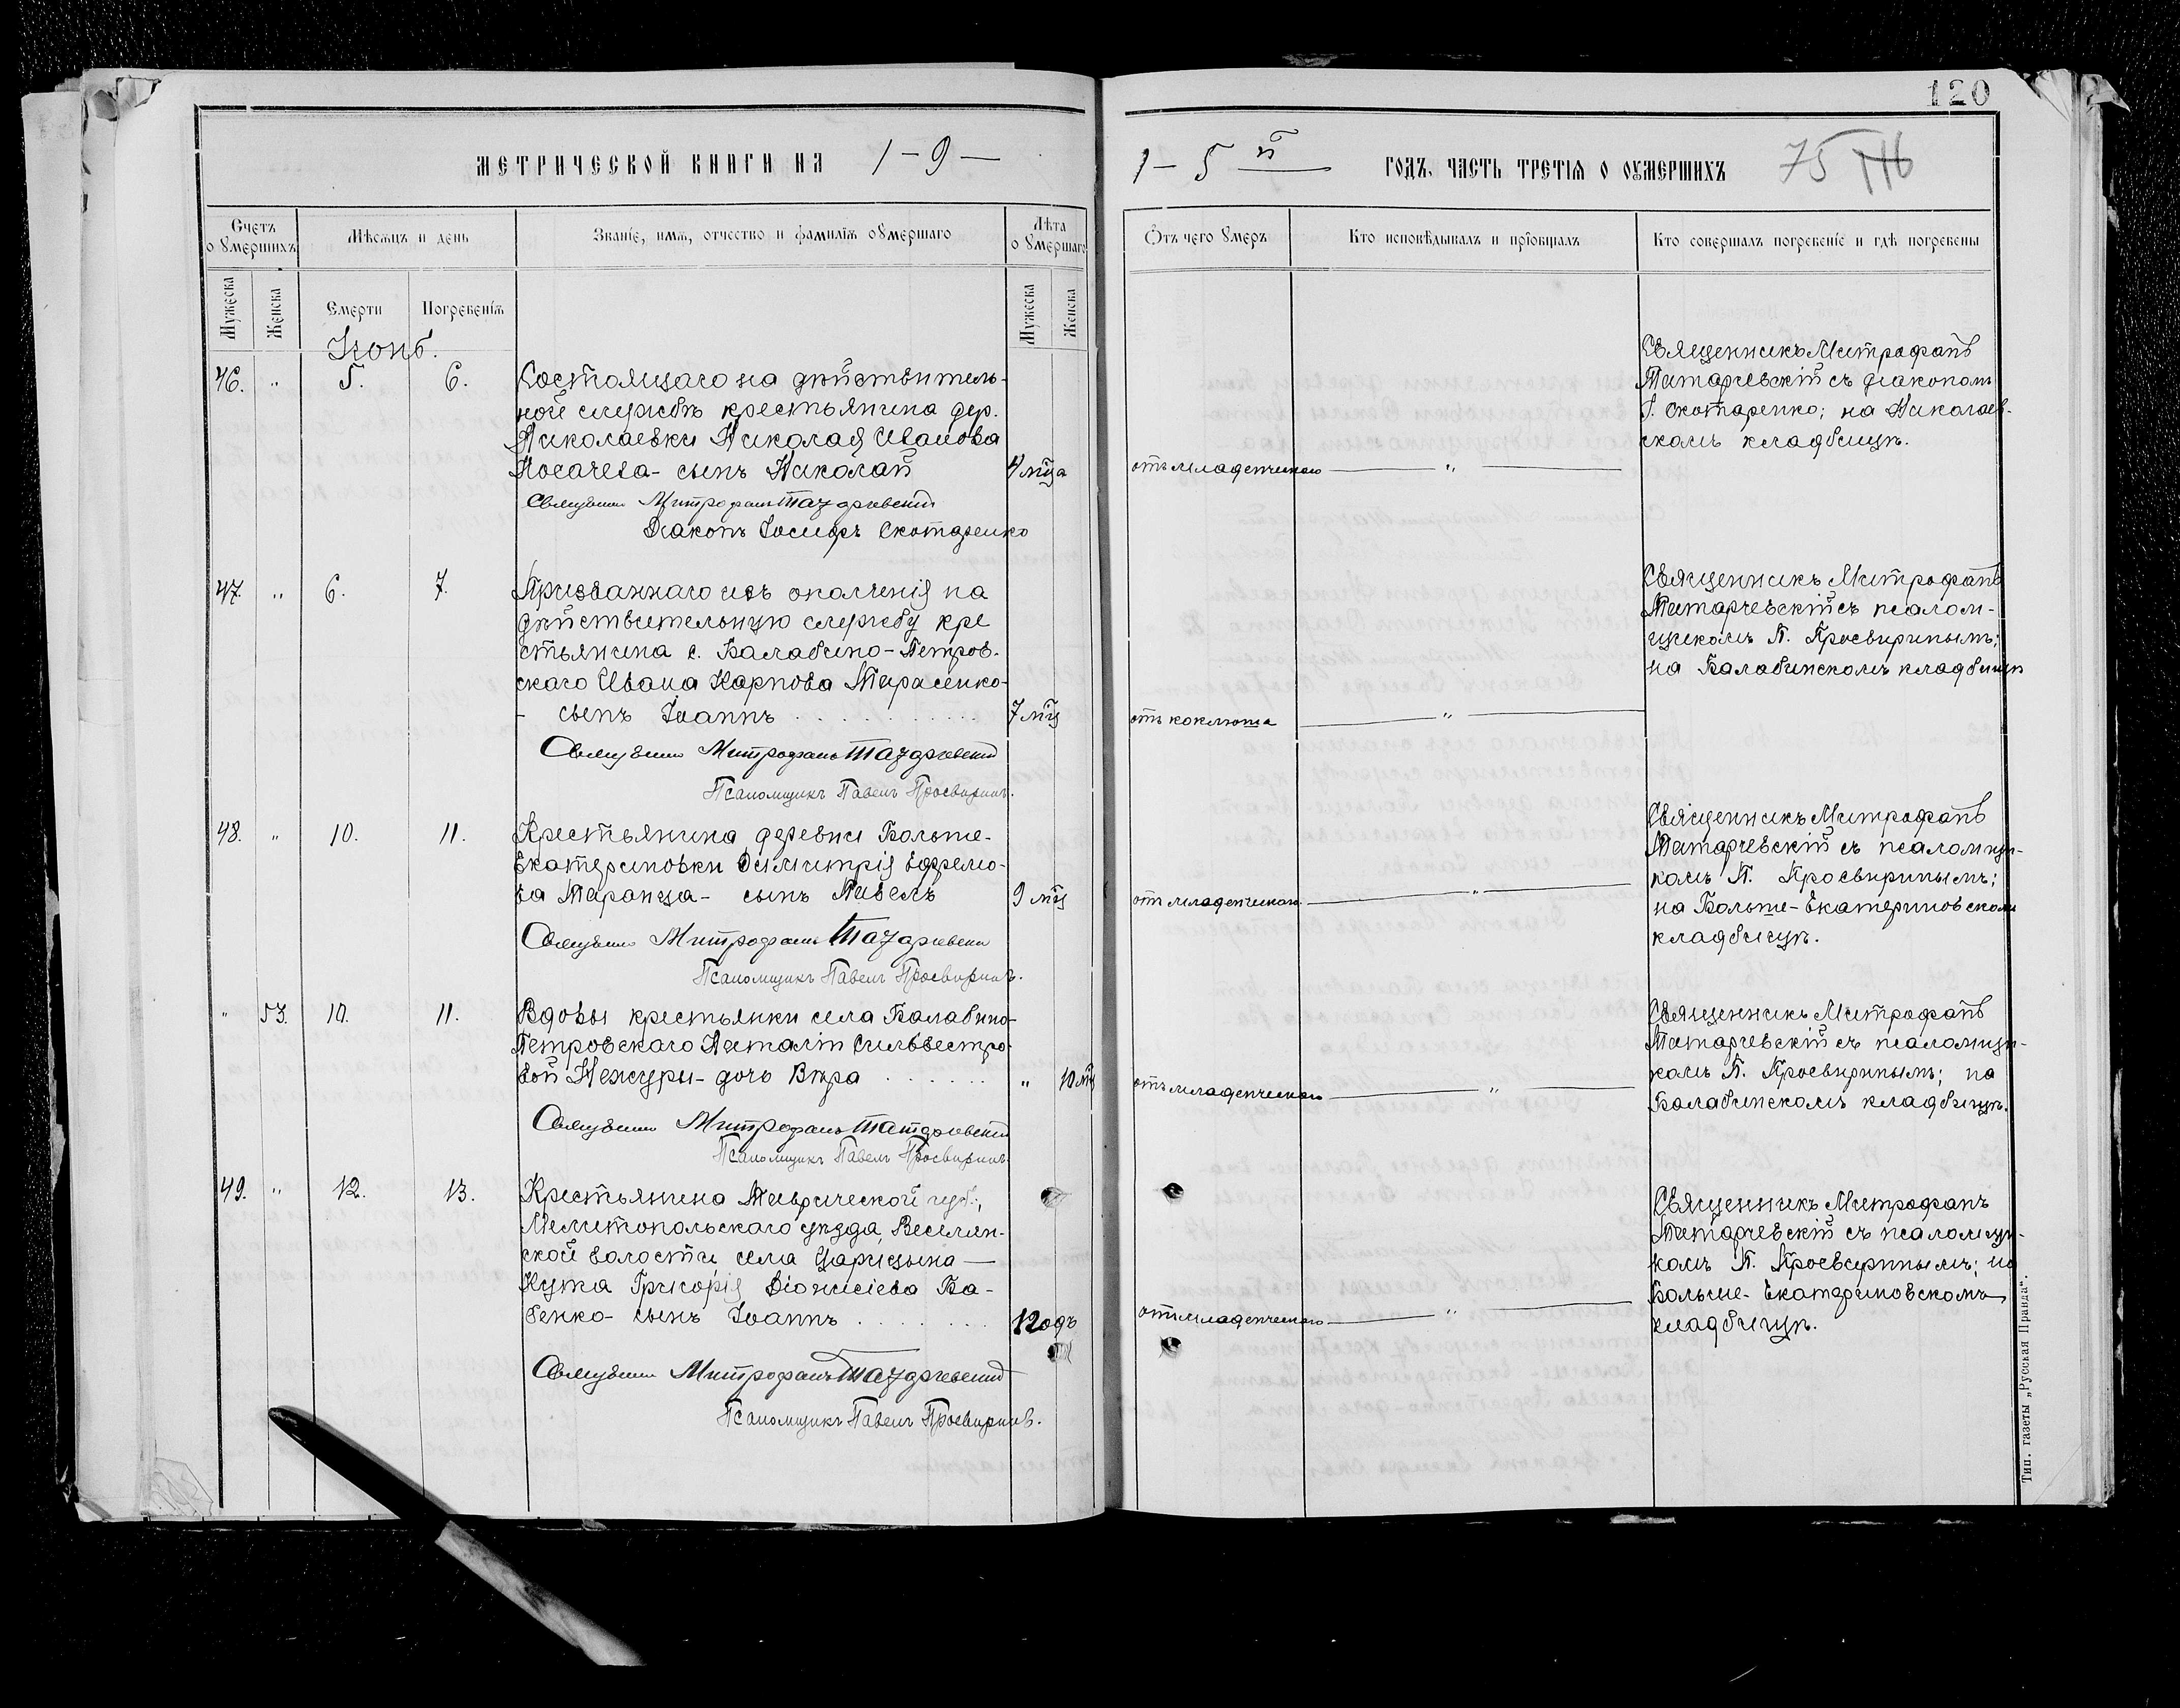 120
МЕТРИЧЕСКОЙ КНИГИ НА 1-9-
1-5й ГОДЪ. ЧАСТЬ ТРЕТІЯ О ОУМЕРШИХЪ 75
Счетъ оумершихъ
Мѣсяцъ и день
Званіе, имя, отчество и фамилія оумершаго
Лѣта оумершаго
Отъ чего умеръ
Кто исповѣдывалъ и пріобщалъ
Кто совершалъ погребеніе и гдѣ погребены
Мужеска
Женска
Смерти
Погребенія
Мужеска
Женска
Іюнь.
46. " 5. 6. Состоящаго на дѣйствитель-
ной службѣ крестьянина дер.
Николаевки Николая Иванова
Носачева - сынъ Николай 4 мца
отъ младенческаго "
Священникъ Митрофанъ
Татарчевскій съ діакономъ
І. Скотаренко; на Николаев-
скомъ кладбищѣ.
Священникъ Митрофанъ Татарчевскій
Діаконъ Іосифъ Скотаренко
47. " 6. 7. Призваннаго изъ ополченія на
дѣйствительную службу кре
стьянина с. Балабино-Петров-
скаго Ивана Карпова Тарасенко-
- сынъ Іоаннъ 7 мцъ
отъ коклюша "
Священникъ Митрофанъ
Татарчевскій съ псалом-
щикомъ П. Просвиринымъ;
на Балабинскомъ кладбищѣ
Священникъ Митрофанъ Татарчевскій
Псаломщикъ Павелъ Просвиринъ.
48. " 10. 11. Крестьянина деревни Больше-
Екатериновки Димитрія Ефремо-
ва Таранца - сынъ Павелъ 9 мцъ
отъ младенческаго "
Священникъ Митрофанъ
Татарчевскій съ псаломщи-
комъ П. Просвиринымъ;
на Больше-Екатериновскомъ
кладбищѣ.
Священникъ Митрофанъ Татарчевскій
Псаломщикъ Павелъ Просвиринъ.
" 53. 10. 11. Вдовы крестьянки села Балабино-
Петровскаго Наталіи Сильвестро-
вой Нежуры - дочь Вѣра " 10 мцъ
отъ младенческаго "
Священникъ Митрофанъ
Татарчевскій съ псаломщи-
комъ П. Просвиринымъ; на
Балабинскомъ кладбищѣ.
Священникъ Митрофанъ Татарчевскій
Псаломщикъ Павелъ Просвиринъ.
49. " 12. 13. Крестьянина Таврической губ.,
Мелитопольскаго уѣзда, Веселян-
ской волости, села Царицына
Кута Григорія Діонисіева Ба-
бенко - сынъ Іоаннъ 1 годъ
отъ младенческаго "
Священникъ Митрофанъ
Татарчевскій съ псаломщи-
комъ П. Просвиринымъ; на
Больше-Екатериновскомъ
кладбищѣ.
Священникъ Митрофанъ Татарчевскій
Псаломщикъ Павелъ Просвиринъ.
Тип. газеты „Русская Правда“.